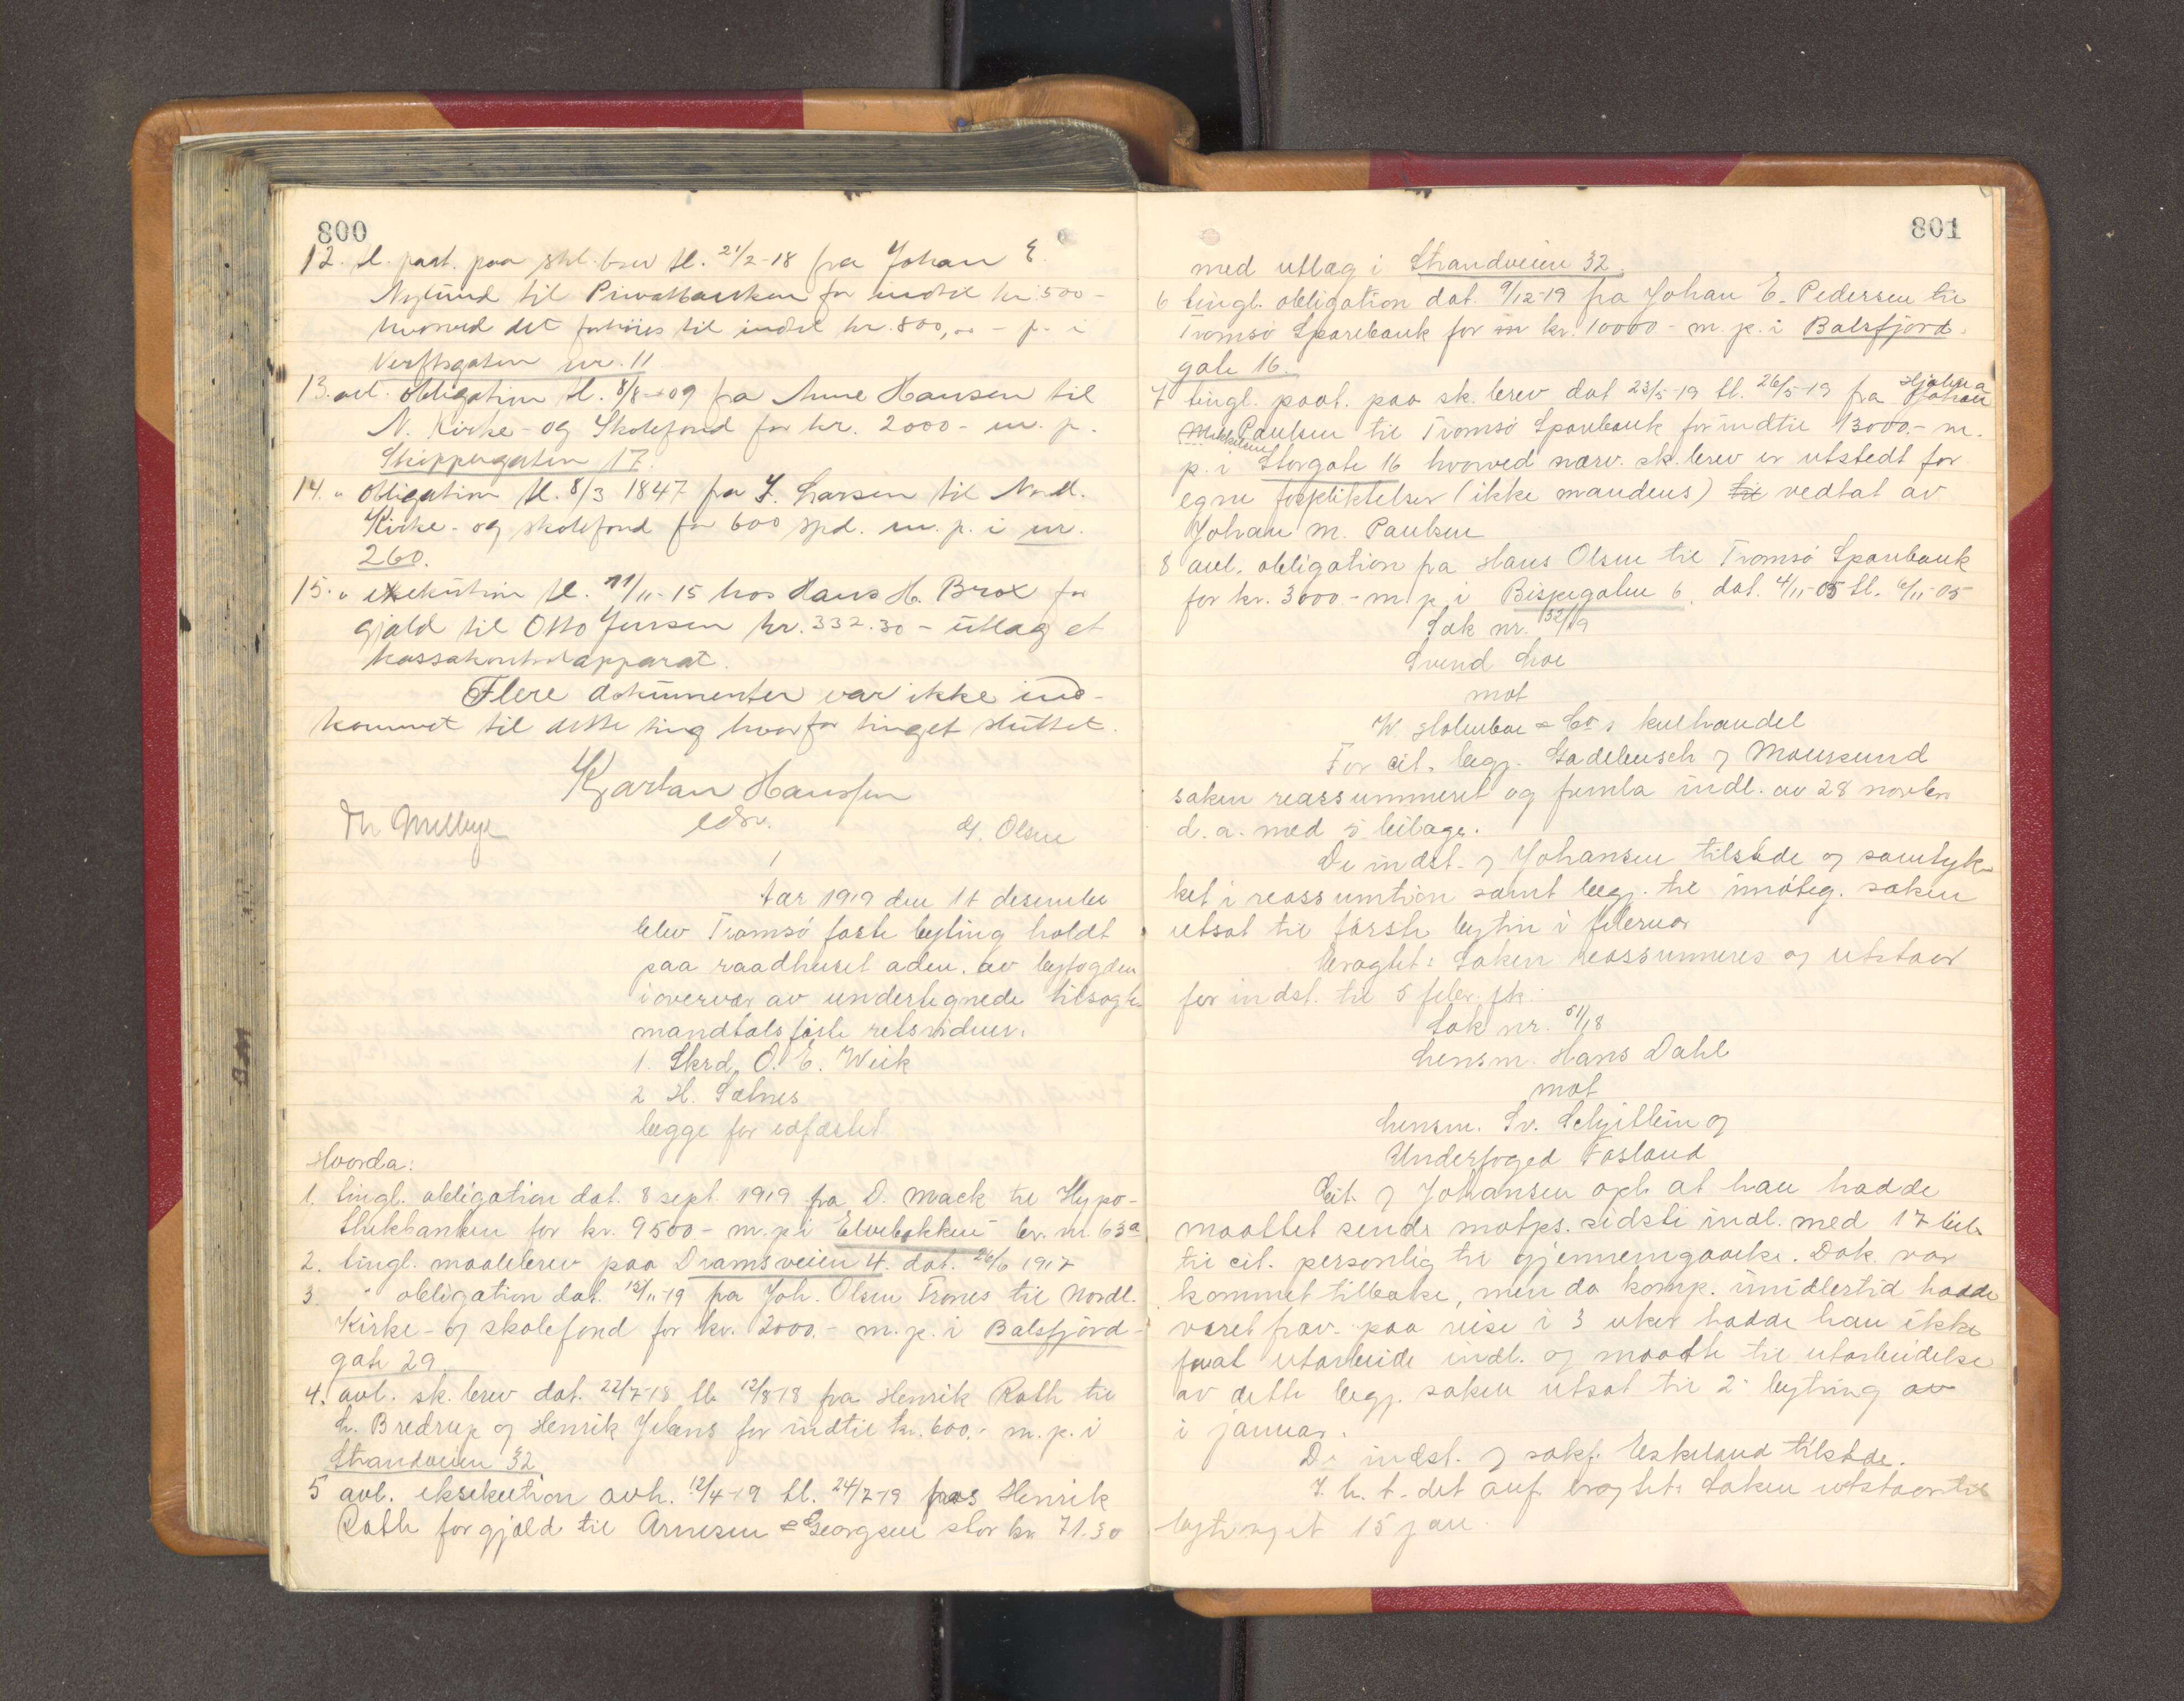 800
12. tl. paat. paa skl.brev tl. 21/2-18 fra Johan E.
Nylund til Privatbanken for indtil kr. 500-
hvorved det forhöies til indtil kr. 800,00 - p. i
Verftsgaten nr. 11
13. avl. obligation tl. 8/8-09 fra Anne Hansen til
N. Kirke- og Skolefond for kr. 2000- m. p.
Skippergaten 17.
14. " Obligation tl. 8/3 1847 fra J. Larsen til Nordl.
Kirke- og skolefond for 600 spd. m. p. i nr.
260.
15. " exekution tl. 11/11-15 hos Hans H. Brox for
gjæld til Otto Jensen kr. 332.30 - utlæg et
kassakontrolapparat.
Flere dokumenter var ikke ind-
kommet til dette ting hvorfor tinget sluttet.
Kjartan Hanssen
edsv.
G. Olsen
Aar 1919 den 11 desember
blev Tromsö faste byting holdt
paa raadhuset adm. av byfogden
i overvær av undertegnede tilsagte
mandtalsförte retsvidner.
1. Skrd. O. E. Wiik
2 H. Sætnes
begge før edfæstet
Hvorda:
1. tingl. obligation dat. 8 sept. 1919 fra D. Mack til Hypo-
thekbanken for kr. 9500- m. p. i Elvebakken br. nr. 63a
2. tingl. maalebrev paa Dramsveien 4. dat. 26/6 1917
3. " obligation dat. 15/11-19 fra Joh. Olsen Trones til Nordl.
Kirke- og skolefond for kr. 2000.- m. p. i Balsfjord-
gate 29.
4. avl. sk.brev dat. 22/7-18 tl. 12/8-18 fra Henrik Rath til
L. Bredrup og Henrik Jebens for indtil kr. 600.- m. p. i
Strandveien 32
5 avl. eksekution avh. 12/4-19 tl. 24/7-19 hos Henrik
Rath for gjæld til Arnesen & Georgsen stor kr. 71.30
801
med utlæg i Strandveien 32.
6 tingl. obligation dat. 9/12-19 fra Johan E. Pedersen til
Tromsö Sparebank for kr. 10000- m. p. i Balsfjord-
gate 16.
7 tingl. paat. paa sk.brev dat 23/5-19 tl. 26/5-19 fra Johan
Hjalma
Mikkelsen
Paulsen til Tromsö Sparebank for indtil 13000.- m.
p. i Storgate 16 hvorved nærv. sk.brev er utstedt for
egne forpliktelser (ikke mandens) til vedtat av
Johan M. Paulsen
8 avl. obligation fra Hans Olsen til Tromsö Sparebank
for kr. 3000.- m. p. i Bispegaten 6. dat. 4/11-05 tl. 6/11-05
Sak nr. 32/19
Svend Loe
mot
W Holmboe & Co s kulhandel
For cit. begj. Gadebusch og Moursund
saken reassummeret og fremla indl. av 28 novbr
d. a. med 5 bilage.
De indst. og Johansen tilstede og samtyk-
ket i reassumtion samt begj. til imöteg. saken
utsat til förste bytin i februar
Eragtet: Saken reassumeres og utstaar
for indst. til 5 febr. fk.
Sak nr. 51/18
Lensm. Hans Dahl
mot
Lensm. Sv. Schjitlein og
Underfoged Fosland
Cit. og Johansen opl. at han hadde
maattet sende motps. sidste indl. med 17 bil.
til cit. personlig til gjennemgaaelse. Dok. var
kommet tilbake, men da komp. imidlertid hadde
været frav. paa reise i 3 uker hadde han ikke
faat utarbeide indl. og maatte til utarbeidelse
av dette begj. saken utsat til 2 byting av
i januar.
De indst. og sakf. Eskeland tilstede.
I. h. t. det anf. eragtet: Saken utstaar til
bytinget 15 jan.